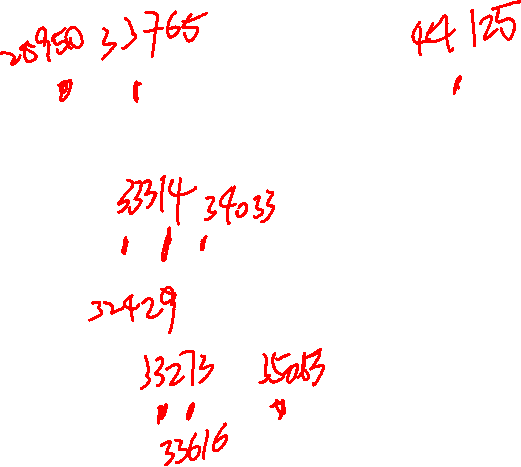 28950 33765 44125
33314 34033
32429
33273 35053
33616